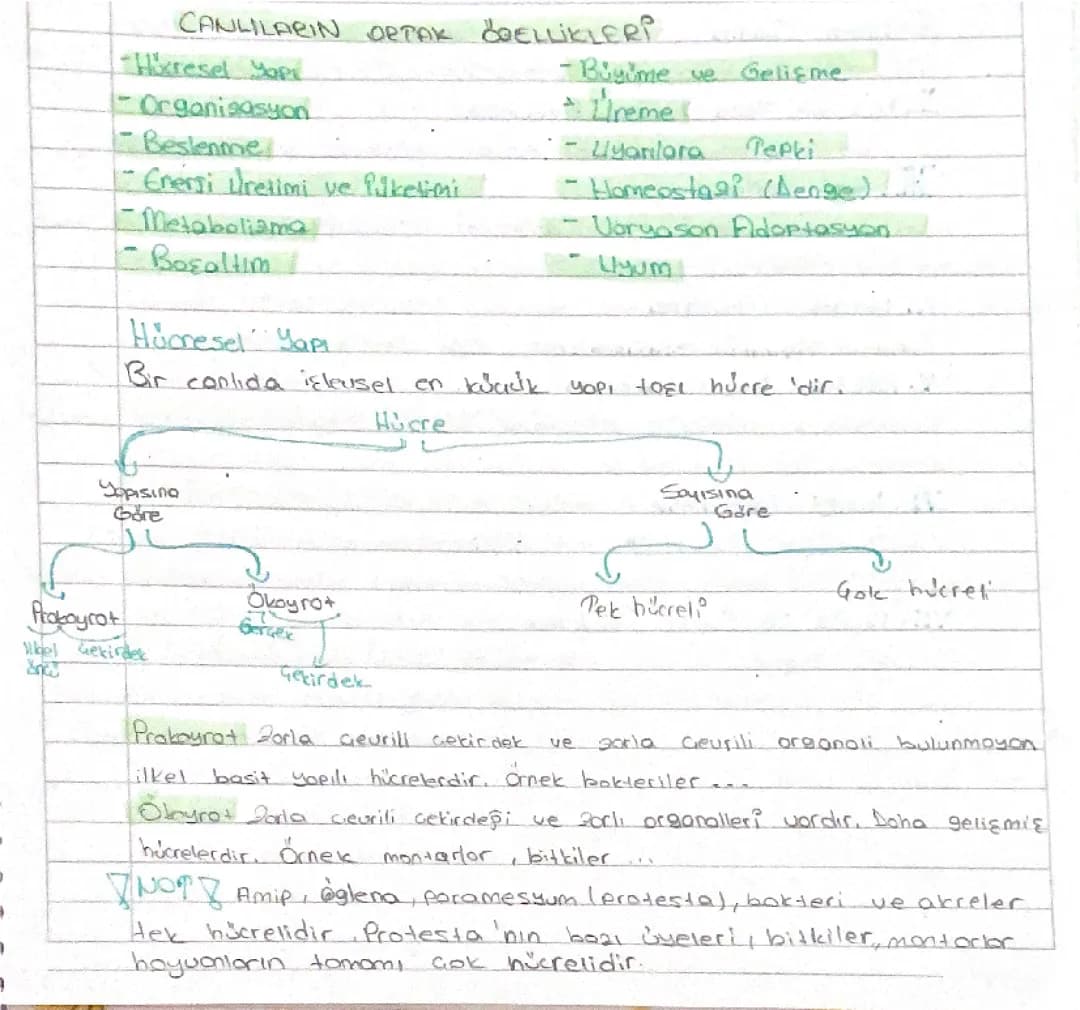 CANLILARIN ORTAK ÖZELLİKLERİ
- Hücresel Yapı
- Organizasyon
- Beslenme
- Enerji Üretimi ve Tüketimi
- Metabolizma
- Boşaltım
- Büyüme ve Gelişme
- Üreme
- Uyarılara Tepki
- Homeostazi (Denge)
- Varyason Adaptasyon
- Uyum
Hücresel Yapı
Bir canlıda işlevsel en küçük yapı taşı hücre 'dir.
Hücre
Yapısına Göre
Sayısına Göre
Prokayrot
Ökayrot
Tek hücreli
Çok hücreli
ilkel Çekirdek
öncü
Gerçek
Çekirdek
Prokayrot Zarla çevrili çekirdek ve zarla çevrili organeli bulunmayan
ilkel basit yapılı hücrelerdir. Örnek bakteriler ...
Ökayrot Zarla çevrili çekirdeği ve zarlı organelleri vardır. Daha gelişmiş
hücrelerdir. Örnek mantarlar, bitkiler ...
NOT Amip, öglena, paramesyum (protesta), bakteri ve arkeler
tek hücrelidir. Protesta 'nın bazı üyeleri, bitkiler, mantarlar
hayvanların tamamı çok hücrelidir.